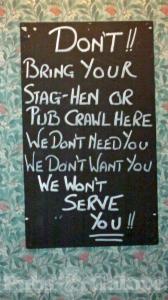 DON'T!!
BRING YOUR
STAG-HEN OR
PUB CRAWL HERE
WE DONT NEED YOU
WE DON'T WANT YOU
WE WON'T
SERVE
YOU!!